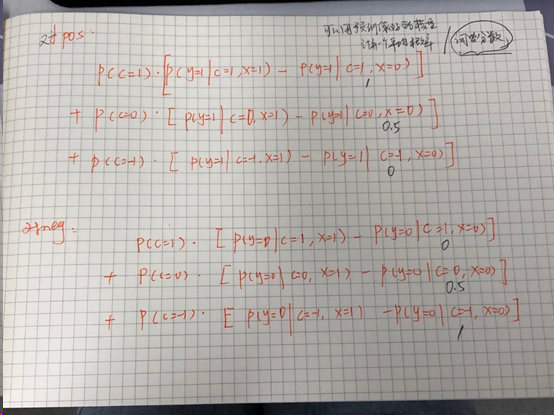 可以用预训练好的模型
词典分数
对pos:
P(c=1)·[P(y=1|c=1,x=1) - P(y=1|c=1,x=0)]
1
+ P(c=0)·[P(y=1|c=0,x=1) - P(y=1|c=0,x=0)]
0.5
+ P(c=-1)·[P(y=1|c=-1,x=1) - P(y=1|c=-1,x=0)]
0
对neg:
P(c=1)·[P(y=0|c=1,x=1) - P(y=0|c=1,x=0)]
0
+ P(c=0)·[P(y=0|c=0,x=1) - P(y=0|c=0,x=0)]
0.5
+ P(c=-1)·[P(y=0|c=-1,x=1) - P(y=0|c=-1,x=0)]
1